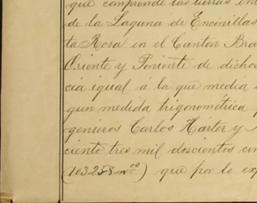 que comprende las tierras en
de la Laguna de Encinillas
ta Rosa en el Canton Bra
Oriente y Poniente de dicho
cia igual a la que media
gun medida trigonométrica
genieros Carlos Hartor y
ciento tres mil doscientos cin
(103.258 m) que por lo ex